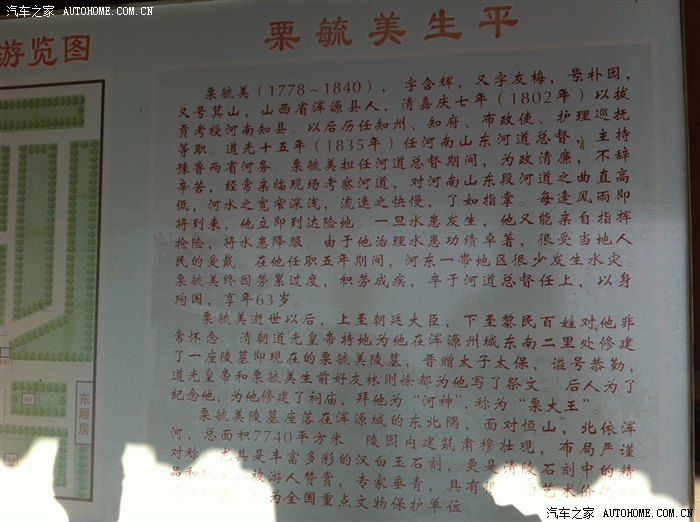 汽车之家 AUTOHOME.COM.CN
游览图
栗毓美生平
栗毓美(1778~1840)，字含辉，又字友梅，号朴园，
又号箕山，山西省浑源县人，清嘉庆七年(1802年)以拔
贡考授河南知县。以后历任知州、知府、布政使、护理巡抚
等职。道光十五年(1835年)任河南山东河道总督，主持
豫鲁两省河务。栗毓美担任河道总督期间，为政清廉，不辞
辛苦，经常亲临现场考察河道，对河南山东段河道之曲直高
低，河水之宽窄深浅，流速之快慢，了如指掌。每逢风雨即
将到来，他立即到达险地。一旦水患发生，他又能亲自指挥
抢险，将水患降服。由于他治理水患功绩卓著，很受当地人
民的爱戴。在他任职五年期间，河东一带地区很少发生水灾。
栗毓美终因劳累过度，积劳成疾，卒于河道总督任上，以身
殉国，享年63岁。
栗毓美逝世以后，上至朝廷大臣，下至黎民百姓对他非
常怀念 清朝道光皇帝特地为他在浑源州城东南二里处修建
了一座陵墓即现在的栗毓美陵墓，晋赠太子太保，谥号恭勤，
道光皇帝和栗毓美生前好友林则徐都为他写了祭文。后人为了
纪念他，为他修建了祠庙，拜他为“河神”，称为“栗大王”
栗毓美陵墓座落在浑源城的东北隅，面对恒山，北依浑
河，总面积7740平方米。陵园内建筑肃穆壮观，布局严谨
对称 尤其是丰富多彩的汉白玉石刻，更是清陵石刻中的精
品 故游人赞赏，专家垂青，具有很 艺术价
为全国重点文物保护单位。
东厢房
汽车之家 AUTOHOME.COM.CN